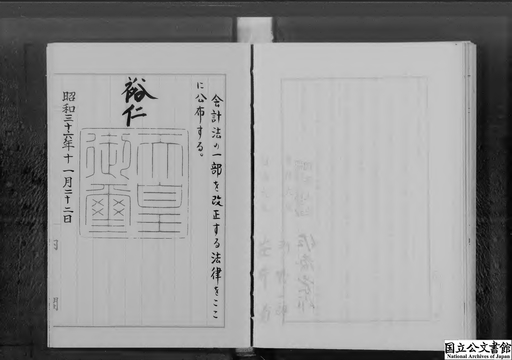 会計法の一部を改正する法律をここ
に公布する。
裕仁
天皇
御璽
昭和三十六年十一月二十二日
国立公文書館
National Archives of Japan